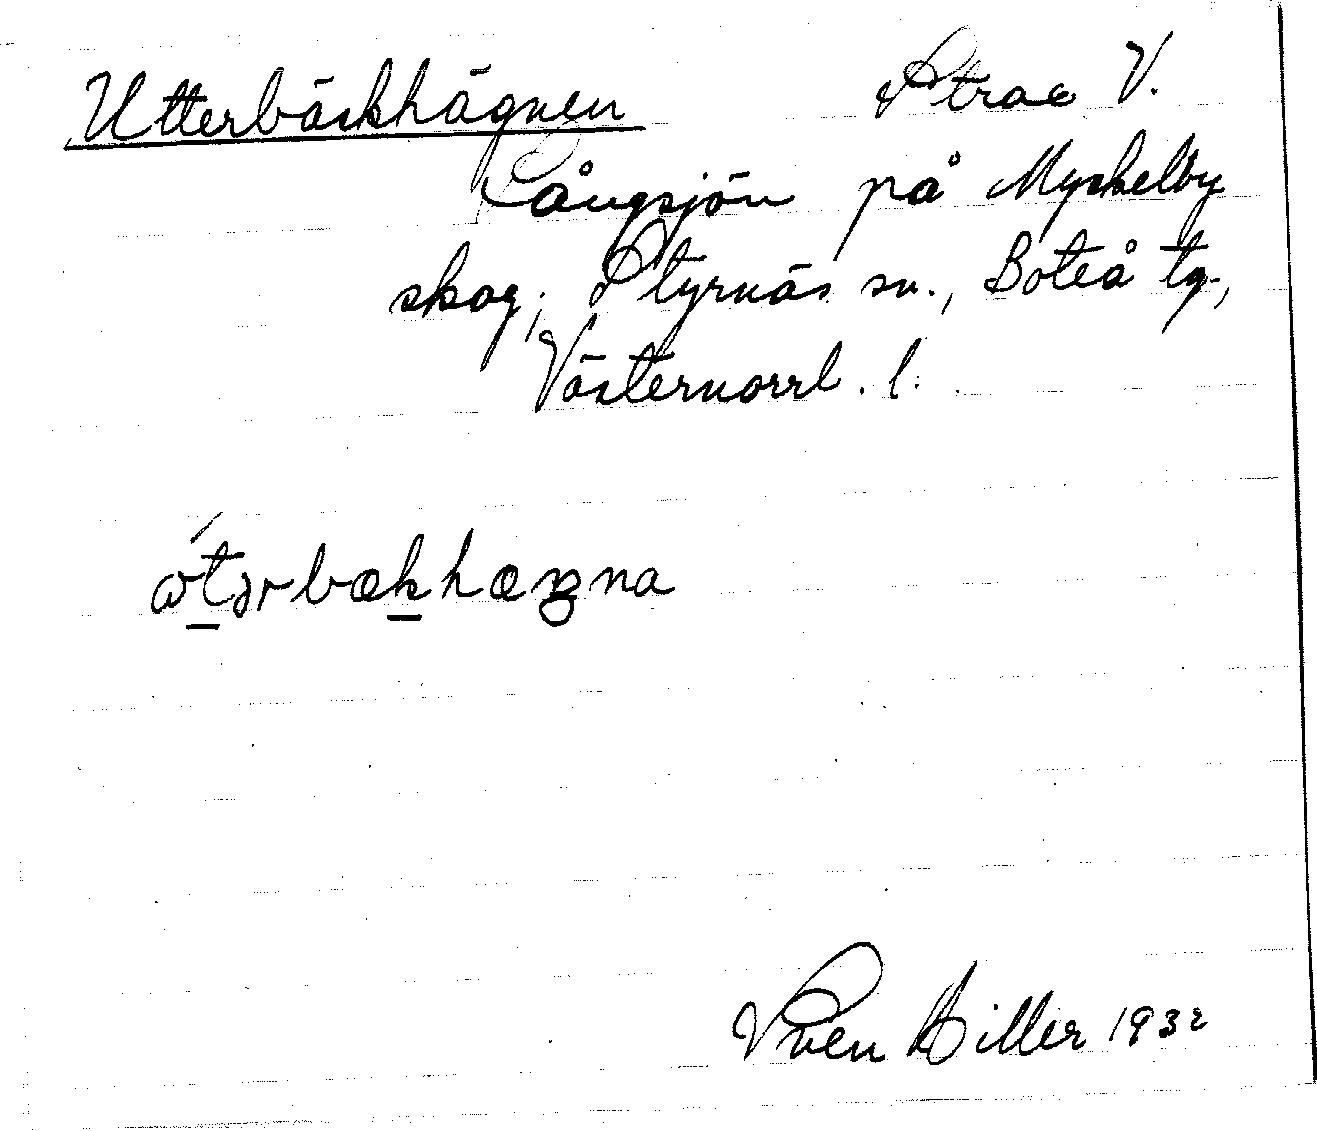 Utterbäckhägnen Strax V.
Långsjön på Myckelby
skog, Styrnäs sn., Boteå tg.,
Västernorrl. l.
ótərbækhæŋna
Sven Hiller 1932